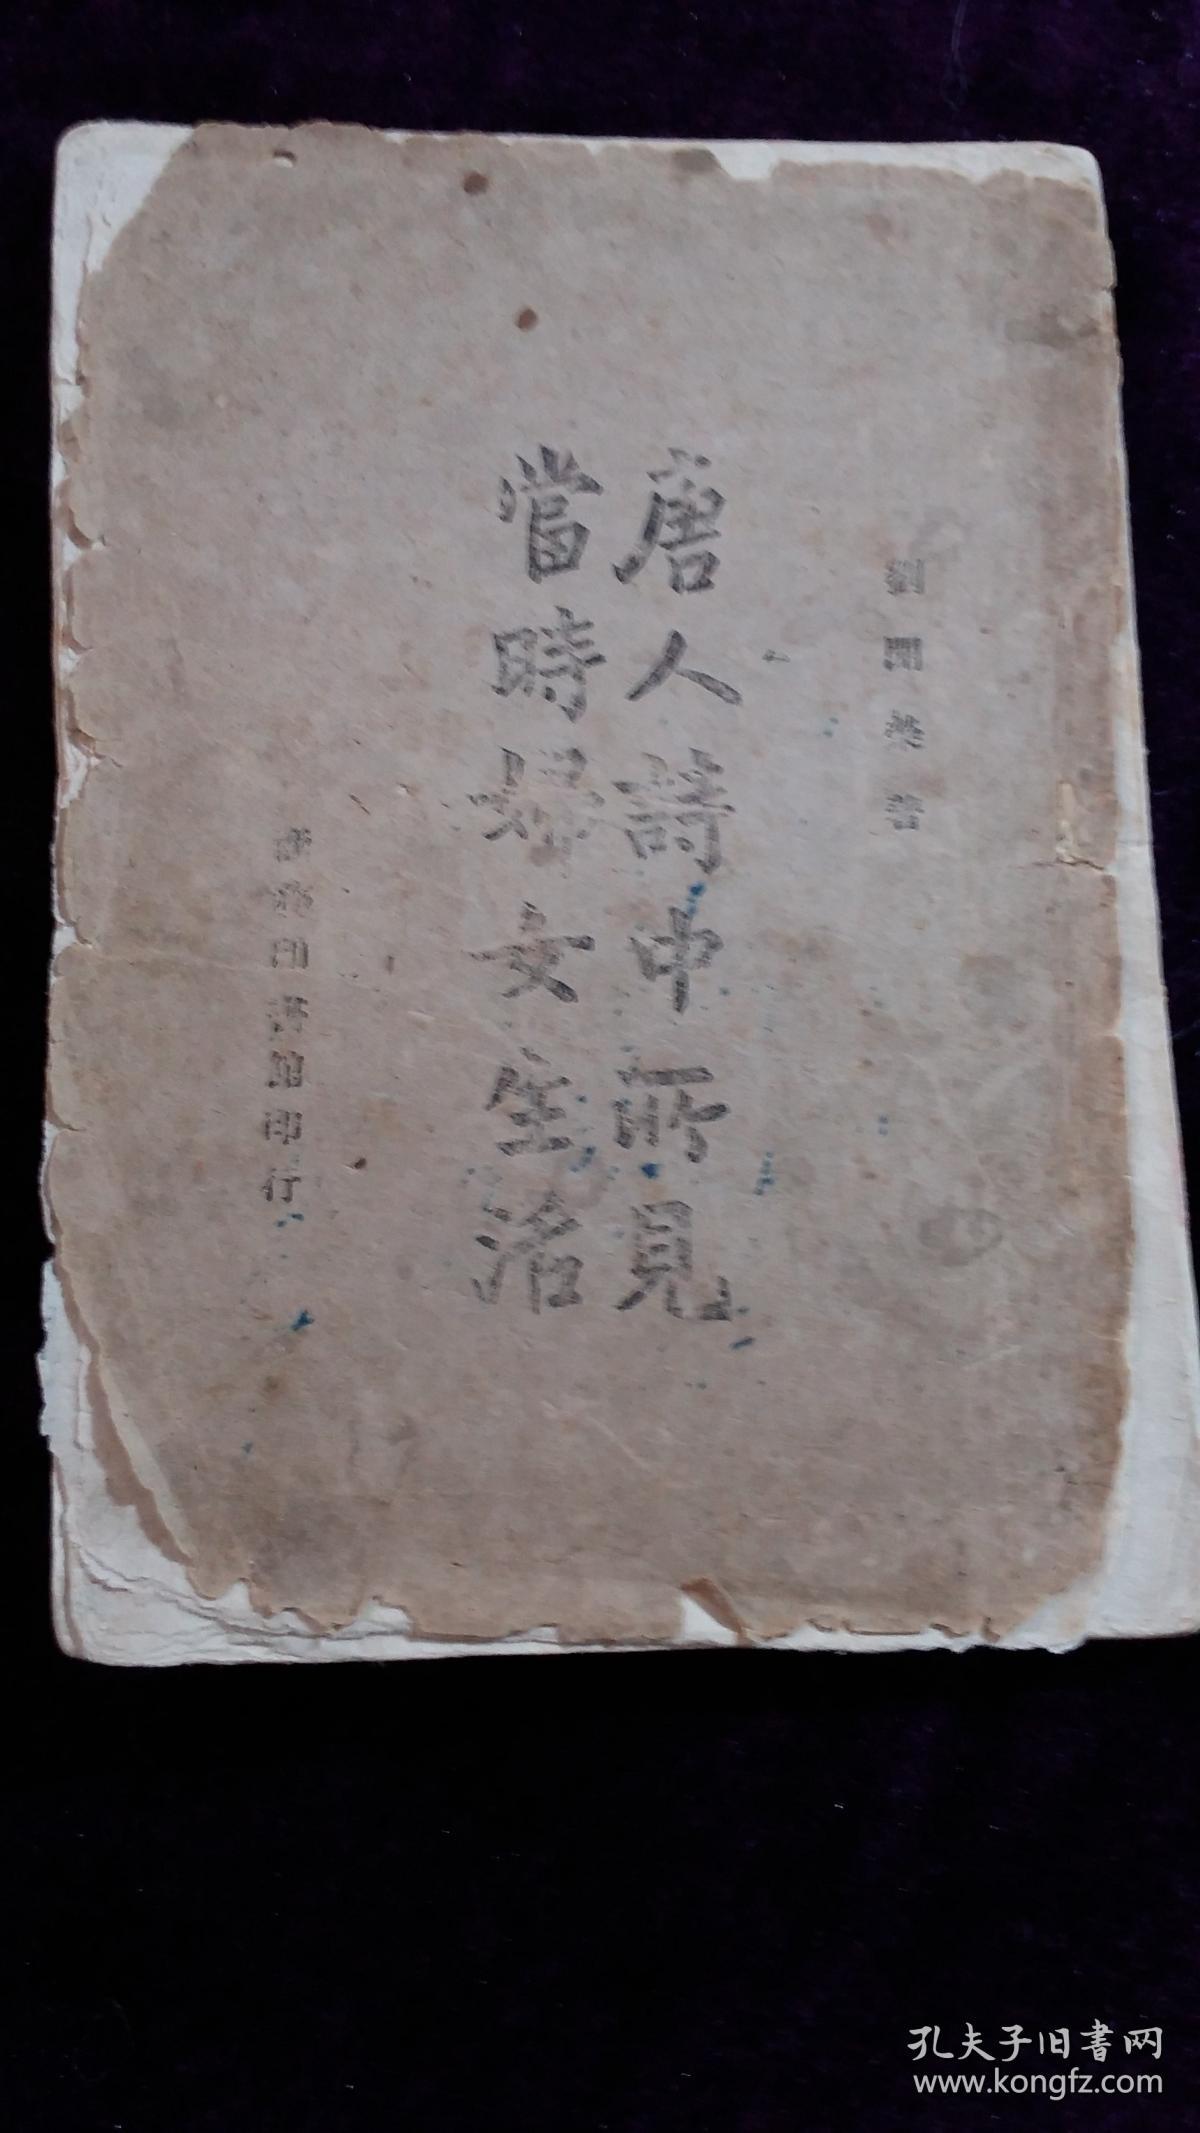 劉開榮著
唐人詩中所見
當時婦女生活
商務印書館印行
孔夫子旧書网
www.kongfz.com